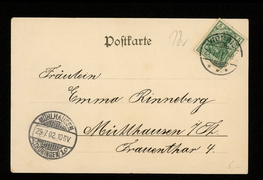 Postkarte
Fräulein
Emma Rinneberg
Mühlhausen i/Th.
Frauenthor 4.
MÜHLHAUSEN
29.7.02.10-11V.